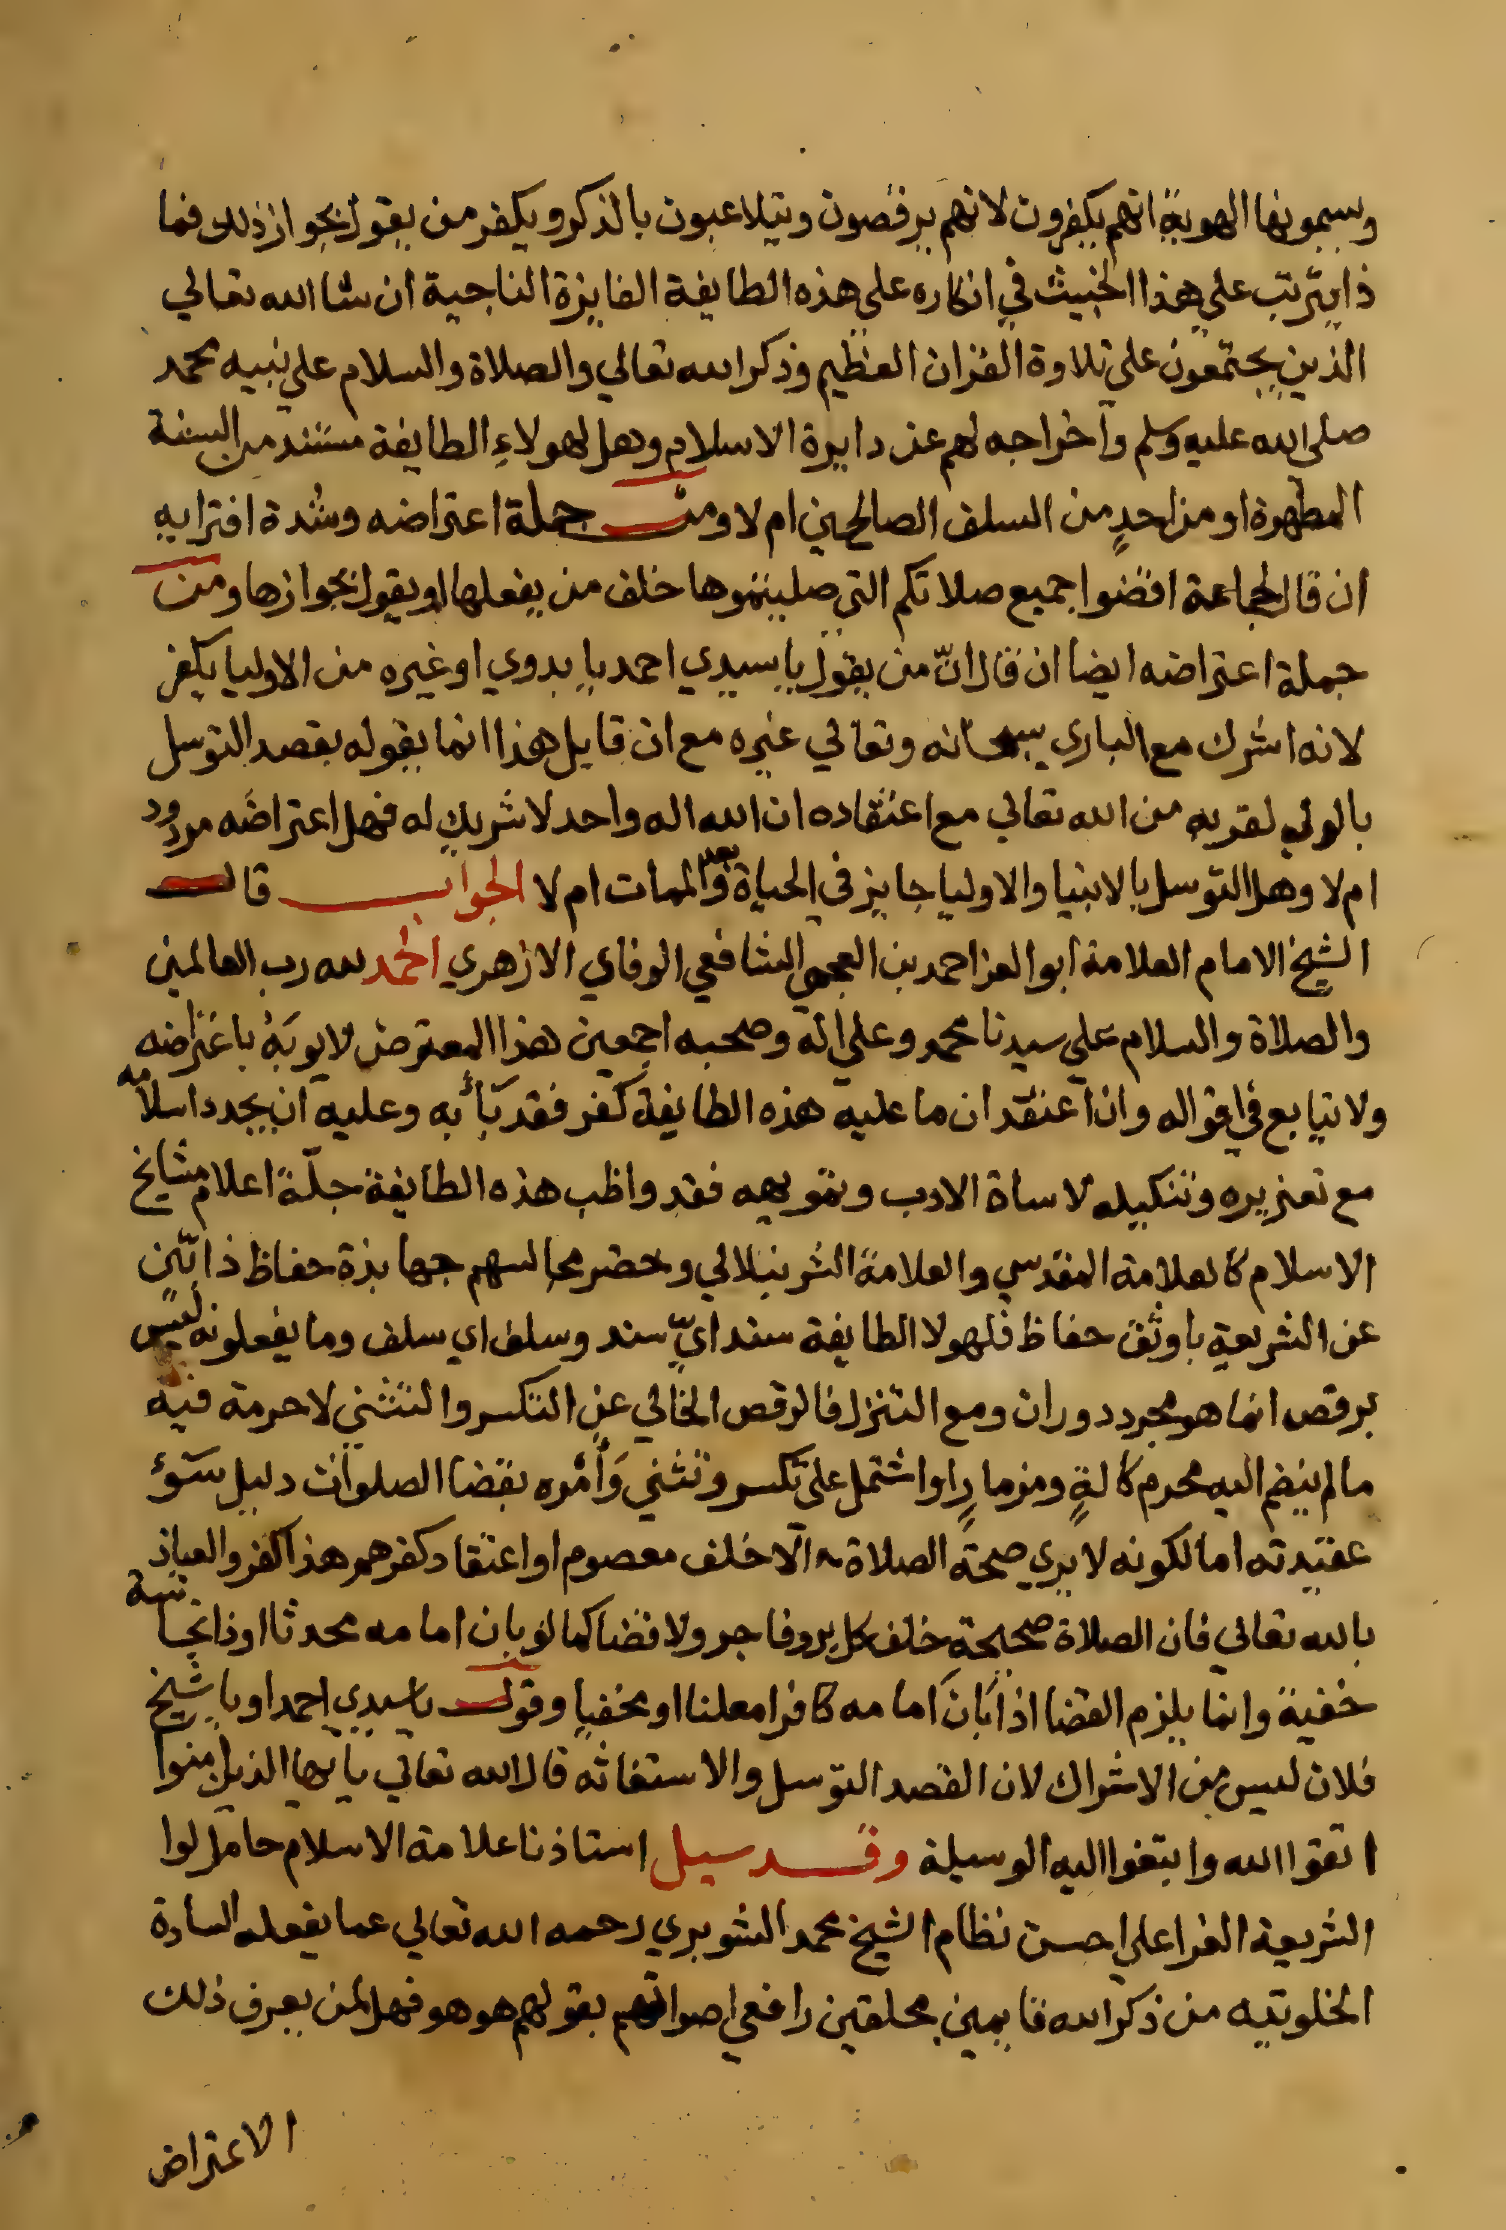 ويسمونها الهوية انهم يكفرون لانهم يرقصون ويتلاعبون بالذكر ويكفر من يقول بجواز ذلك فما
ذا يترتب علي هذا الخبيث في انكاره على هذه الطايفة الفايزة الناجية ان شا الله تعالي
الذين يجتمعون علي تلاوة القران العظيم وذكر الله تعالي والصلاة والسلام علي نبيه محمد
صلى الله عليه وسلم واخراجه لهم عن دايرة الاسلام وهل لهولاءِ الطايفة مستند من السنة
المطهرة او من احدٍ من السلف الصالحين ام لا ومن جملة اعتراضه وشدة افترايه
ان قال لجماعة اقضوا جميع صلاتكم التي صليتموها خلف من يفعلها او يقول بجوازها ومن
جملة اعتراضه ايضا ان قال انّ من يقول يا سيدي احمد يا بدوي او غيره من الاوليا يكفر
لانه اشرك مع الباري سبحانه وتعالي غيره مع ان قايل هذا انما يقوله بقصد التوسل
بالولي لقربه من الله تعالي مع اعتقاده ان الله اله واحد لا شريك له فهل اعتراضه مردود
ام لا وهل التوسل بالانبيا والاوليا جايز في الحياة وبعد الممات ام لا الجواب قال
الشيخ الامام العلامة ابو العز احمد بن العجمي الشافعي الوفاي الازهري الحمد لله رب العالمين
والصلاة والسلام علي سيدنا محمد وعلي اله وصحبه اجمعين هذا المعترض لا يوبَهُ باعتراضه
ولا يتابع في اقواله وان اعتقد ان ما عليه هذه الطايفة كفر فقد بَأ به وعليه ان يجدد اسلامه
مع تعزيره وتنكيله لاساة الادب وتمويهه فقد واظب هذه الطايفة جلّة اعلام مشايخ
الاسلام كالعلامة المقدسي والعلامة الشرنبلالي وحضر مجالسهم جهابذة حفاظ ذابّين
عن الشريعة باوثق حفاظ فلهولا الطايفة سند ايّ سند وسلف اي سلف وما يفعلونه ليس
برقص انما هو مجرد دوران ومع التنزل فالرقص الخالي عن التكسر والتثني لا حرمة فيه
مالم ينضم اليه محرم كالةٍ ومزمارٍ او اشتمل علي تكسر وتثني وَأمره بقضا الصلوات دليل سوء
عقيدته اما لكونه لا يري صحة الصلاة الا خلف معصوم او اعتقاد كفرهم هذا كفر والعياذ
بالله تعالي فان الصلاة صحيحة خلف كل بر وفاجر ولا قضا كما لو بان امامه محدثا او ذا نجاسة
خفية وانما يلزم القضا اذا بان امامه كافرا معلنا او مخفيا وقول ياسيدي احمد او يا شيخ
فلان ليس من الاشراك لان القصد التوسل والاستغاثه قال الله تعالي يا ايها الذين امنوا
اتقوا الله وابتغوا اليه الوسيلة وقد سيل استاذنا علامة الاسلام حامل لوا
الشريعة الغرا علي احسن نظام الشيخ محمد الشوبري رحمه الله تعالي عما يفعله السادة
الخلوتيه من ذكر الله قايمين محلقين رافعي اصواتهم بقولهم هو هو فهل لمن يعرف ذلك
الاعتراض